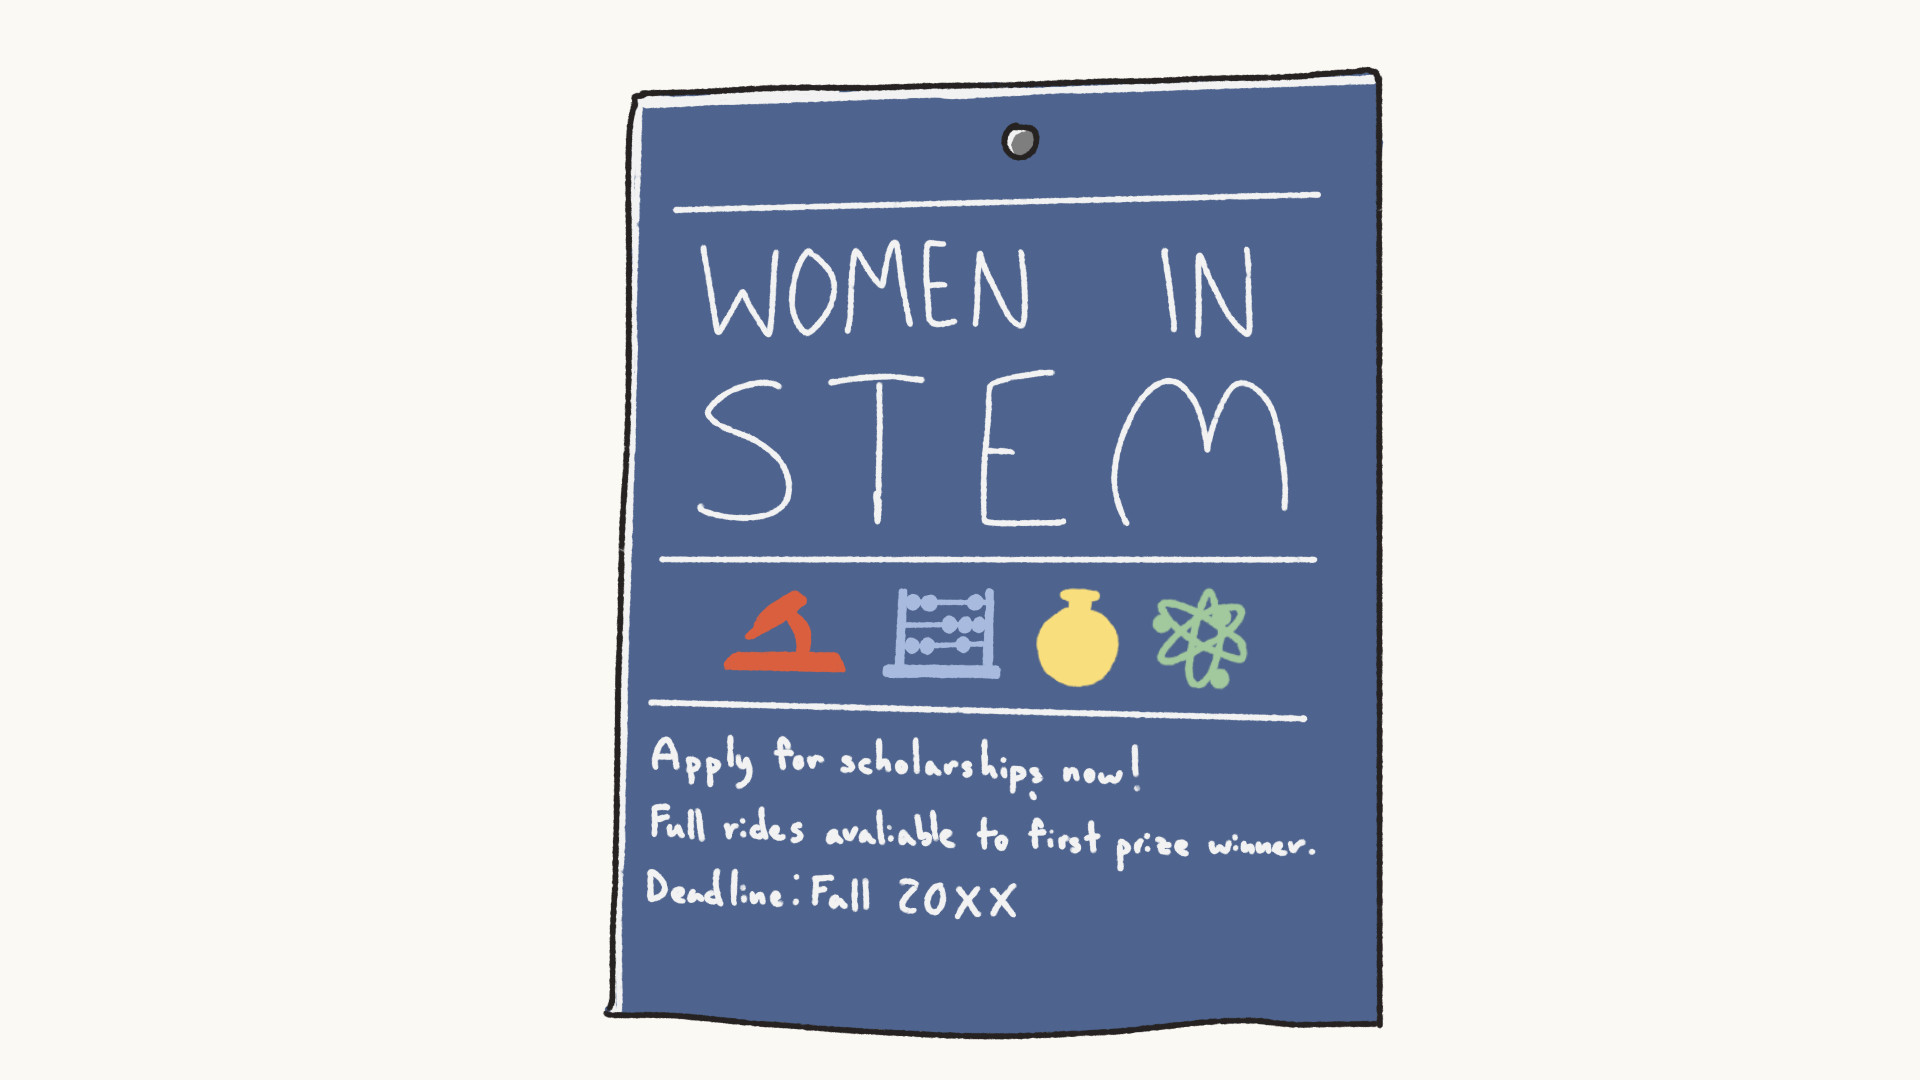 WOMEN IN
STEM
Apply for scholarships now!
Full rides avaliable to first prize winner.
Deadline: Fall 20XX